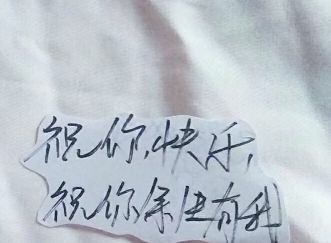 祝你快乐,
祝你余生有我